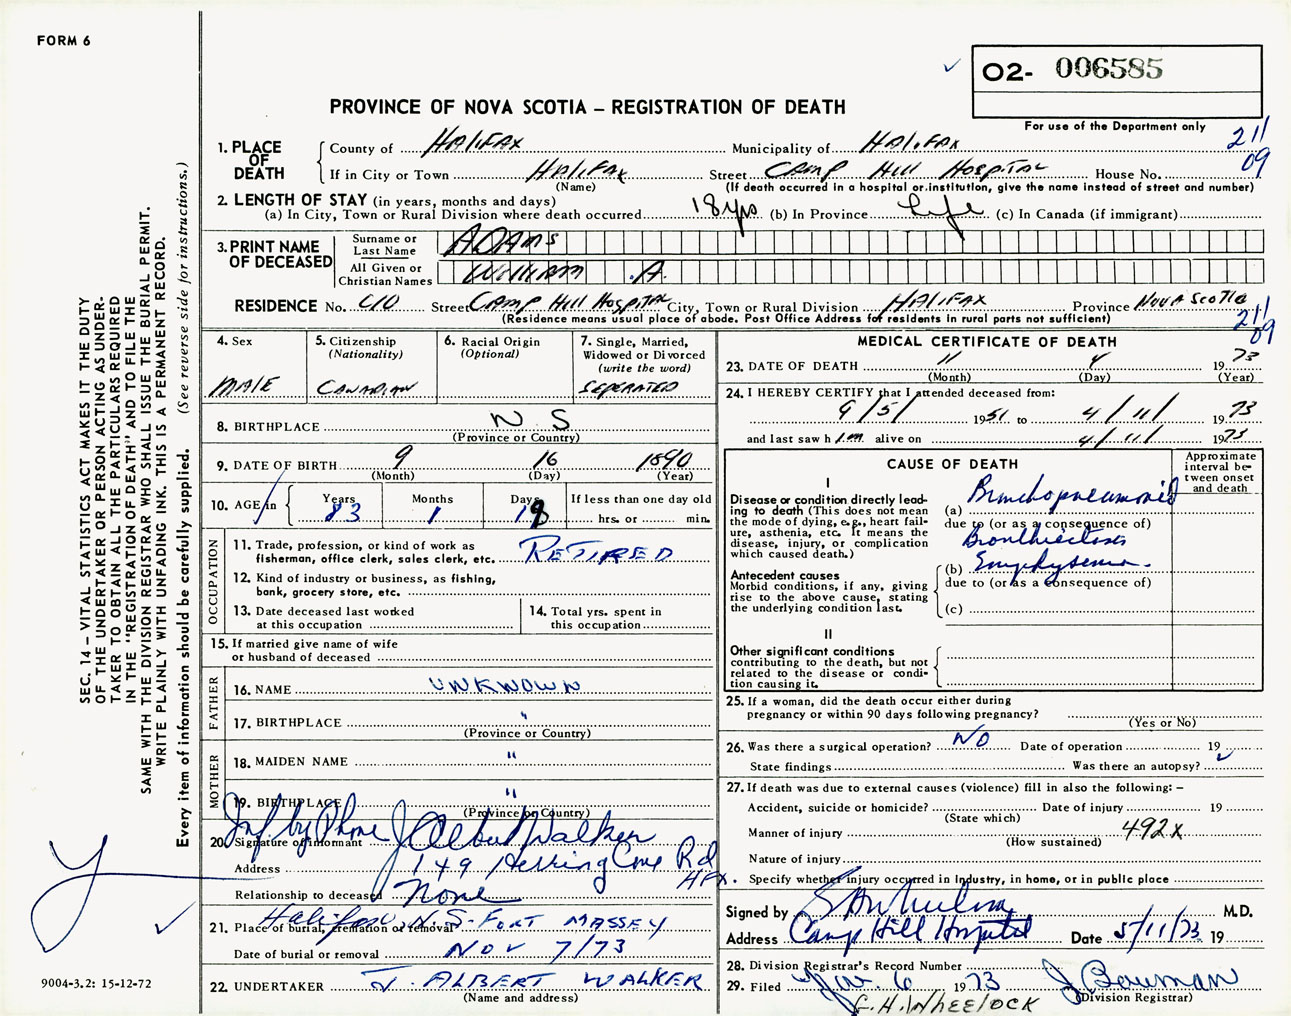 FORM 6
O2- 006585
PROVINCE OF NOVA SCOTIA – REGISTRATION OF DEATH
For use of the Department only
211
09
1. PLACE OF DEATH
County of HALIFAX Municipality of HALIFAX
If in City or Town HALIFAX Street CAMP HILL HOSPITAL House No.
(Name) (If death occurred in a hospital or institution, give the name instead of street and number)
2. LENGTH OF STAY (in years, months and days)
(a) In City, Town or Rural Division where death occurred 18 yrs (b) In Province Life (c) In Canada (if immigrant)
3. PRINT NAME OF DECEASED
Surname or Last Name ADAMS
All Given or Christian Names WILLIAM . A
RESIDENCE No. C/O Street CAMP HILL HOSPITAL City, Town or Rural Division HALIFAX Province NOVA SCOTIA
(Residence means usual place of abode. Post Office Address for residents in rural parts not sufficient)
211
09
4. Sex
MALE
5. Citizenship
(Nationality)
CANADIAN
6. Racial Origin
(Optional)
7. Single, Married,
Widowed or Divorced
(write the word)
SEPERATED
8. BIRTHPLACE N S
(Province or Country)
9. DATE OF BIRTH 9 16 1890
(Month) (Day) (Year)
10. AGE in
Years Months Days If less than one day old
83 1 18 hrs. or min.
OCCUPATION
11. Trade, profession, or kind of work as
fisherman, office clerk, sales clerk, etc. RETIRED
12. Kind of industry or business, as fishing,
bank, grocery store, etc.
13. Date deceased last worked
at this occupation
14. Total yrs. spent in
this occupation
15. If married give name of wife
or husband of deceased
FATHER
16. NAME UNKNOWN
17. BIRTHPLACE "
(Province or Country)
MOTHER
18. MAIDEN NAME "
19. BIRTHPLACE "
(Province or Country)
Inf. by Phone J Albert Walker
20. Signature of informant
Address 149 Herring Cove Rd
HFX.
Relationship to deceased None
Halifax, N.S - FORT MASSEY
21. Place of burial, cremation or removal
Date of burial or removal NOV 7/73
22. UNDERTAKER J. ALBERT WALKER
(Name and address)
MEDICAL CERTIFICATE OF DEATH
23. DATE OF DEATH 11 4 19 73
(Month) (Day) (Year)
24. I HEREBY CERTIFY that I attended deceased from:
9/5/ 1951 to 4/11/ 1973
and last saw h im alive on 4/11/ 1973
CAUSE OF DEATH
Approximate
interval be-
tween onset
and death
I
Disease or condition directly lead-
ing to death (This does not mean
the mode of dying, e.g., heart fail-
ure, asthenia, etc. It means the
disease, injury, or complication
which caused death.)
(a) Bronchopneumonia
due to (or as a consequence of)
Bronchiectasis
Antecedent causes
Morbid conditions, if any, giving
rise to the above cause, stating
the underlying condition last.
(b) Emphysema
due to (or as a consequence of)
(c)
II
Other significant conditions
contributing to the death, but not
related to the disease or condi-
tion causing it.
25. If a woman, did the death occur either during
pregnancy or within 90 days following pregnancy?
(Yes or No)
26. Was there a surgical operation? NO Date of operation 19
State findings Was there an autopsy?
27. If death was due to external causes (violence) fill in also the following: –
Accident, suicide or homicide? Date of injury 19
(State which)
Manner of injury 492X
(How sustained)
Nature of injury
Specify whether injury occurred in industry, in home, or in public place
Signed by M.D.
Address Camp Hill Hospital Date 5/11/73 19
28. Division Registrar's Record Number
29. Filed Nov. 6 1973 J Bowman
(Division Registrar)
G.H. WHEELOCK
SEC. 14 – VITAL STATISTICS ACT MAKES IT THE DUTY
OF THE UNDERTAKER OR PERSON ACTING AS UNDER-
TAKER TO OBTAIN ALL THE PARTICULARS REQUIRED
IN THE "REGISTRATION OF DEATH" AND TO FILE THE
SAME WITH THE DIVISION REGISTRAR WHO SHALL ISSUE THE BURIAL PERMIT.
WRITE PLAINLY WITH UNFADING INK. THIS IS A PERMANENT RECORD.
Every item of information should be carefully supplied. (See reverse side for instructions.)
9004-3.2: 15-12-72